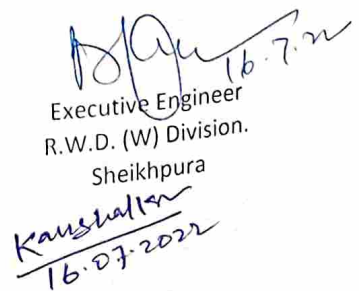 16.7.22
Executive Engineer
R.W.D. (W) Division.
Sheikhpura
16.07.2022